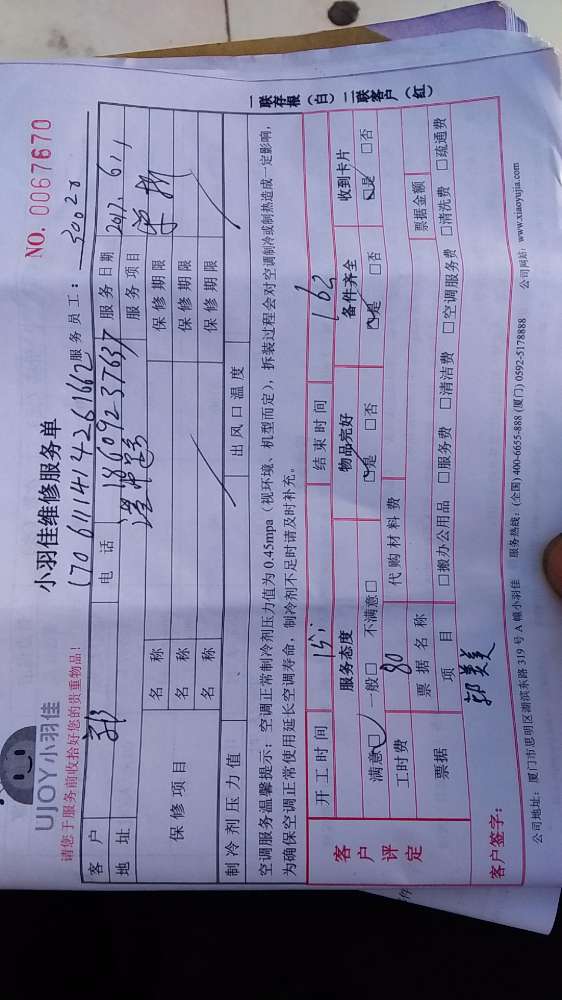 UJOY小羽佳
小羽佳维修服务单
NO. 0067670
请您于服务前收拾好您的贵重物品！
1706111414261662
服务员工：30020
客户 郭 电话 18609237637 服务日期 2017.6.11
地址 服务项目
保修项目 名称 保修期限
名称 保修期限
名称 保修期限
制冷剂压力值 出风口温度
空调服务温馨提示：空调正常制冷剂压力值为0.45mpa（视环境、机型而定），拆装过程会对空调制冷或制热造成一定影响，
为确保空调正常使用延长空调寿命，制冷剂不足时请及时补充。
客户评定
开工时间 结束时间
服务态度 物品完好 备件齐全 收到卡片
满意□ 一般□ 不满意□ □是 □否 □是 □否 □是 □否
工时费 80 代购材料费
票据 票据名称 票据金额
项目 □搬办公用品 □服务费 □清洁费 □空调服务费 □清洗费 □疏通费
客户签字： 郭美美
公司地址：厦门市思明区湖滨东路319号A幢小羽佳 服务热线：(全国) 400-6655-888 (厦门) 0592-5178888 公司网站：www.xiaoyujia.com
一联存根（白）二联客户（红）